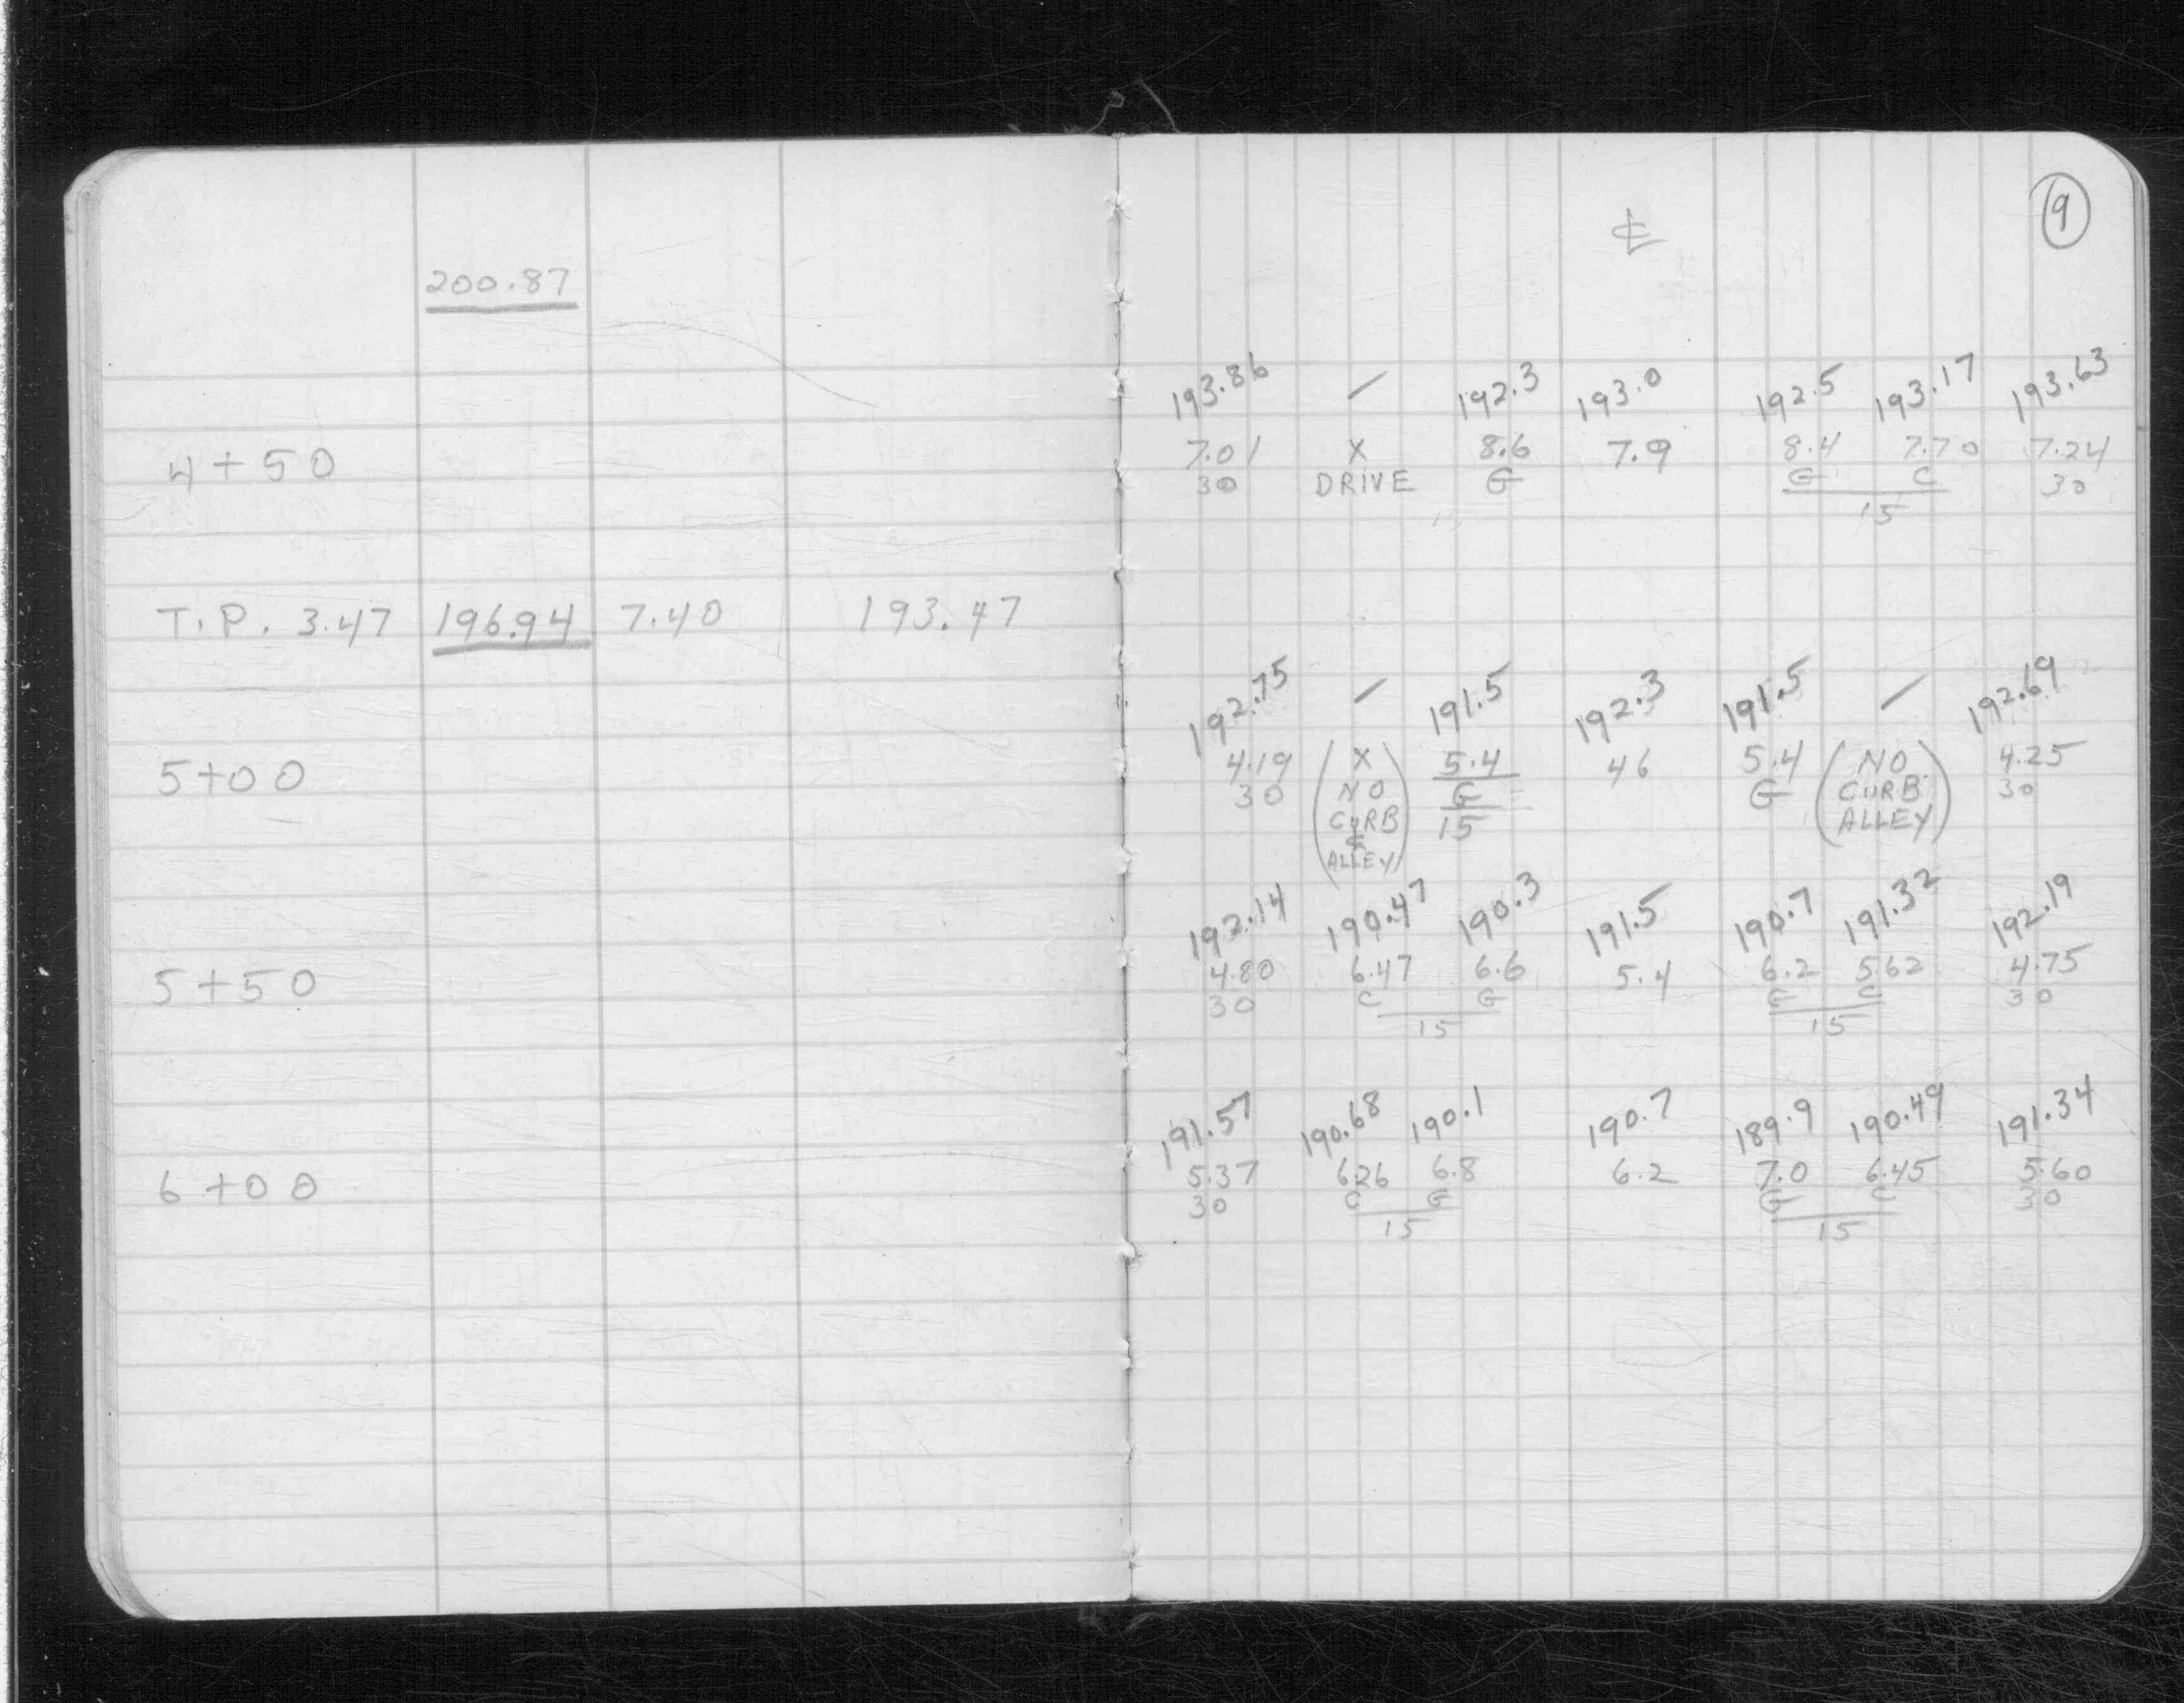 200.87
4+50
T.P. 3.47 196.94 7.40 193.47
5+00
5+50
6+00
9
℄
193.86 / 192.3 193.0 192.5 193.17 193.63
7.01 X 8.6 7.9 8.4 7.70 7.24
30 DRIVE G G C 30
15
192.75 / 191.5 192.3 191.5 / 192.69
4.19 (X 5.4 46 5.4 (NO 4.25
30 NO G G CURB 30
CURB 15 ALLEY)
℄
ALLEY)
192.14 190.47 190.3 191.5 190.7 191.32 192.19
4.80 6.47 6.6 5.4 6.2 5.62 4.75
30 C G G C 30
15 15
191.57 190.68 190.1 190.7 189.9 190.49 191.34
5.37 6.26 6.8 6.2 7.0 6.45 5.60
30 C G G C 30
15 15